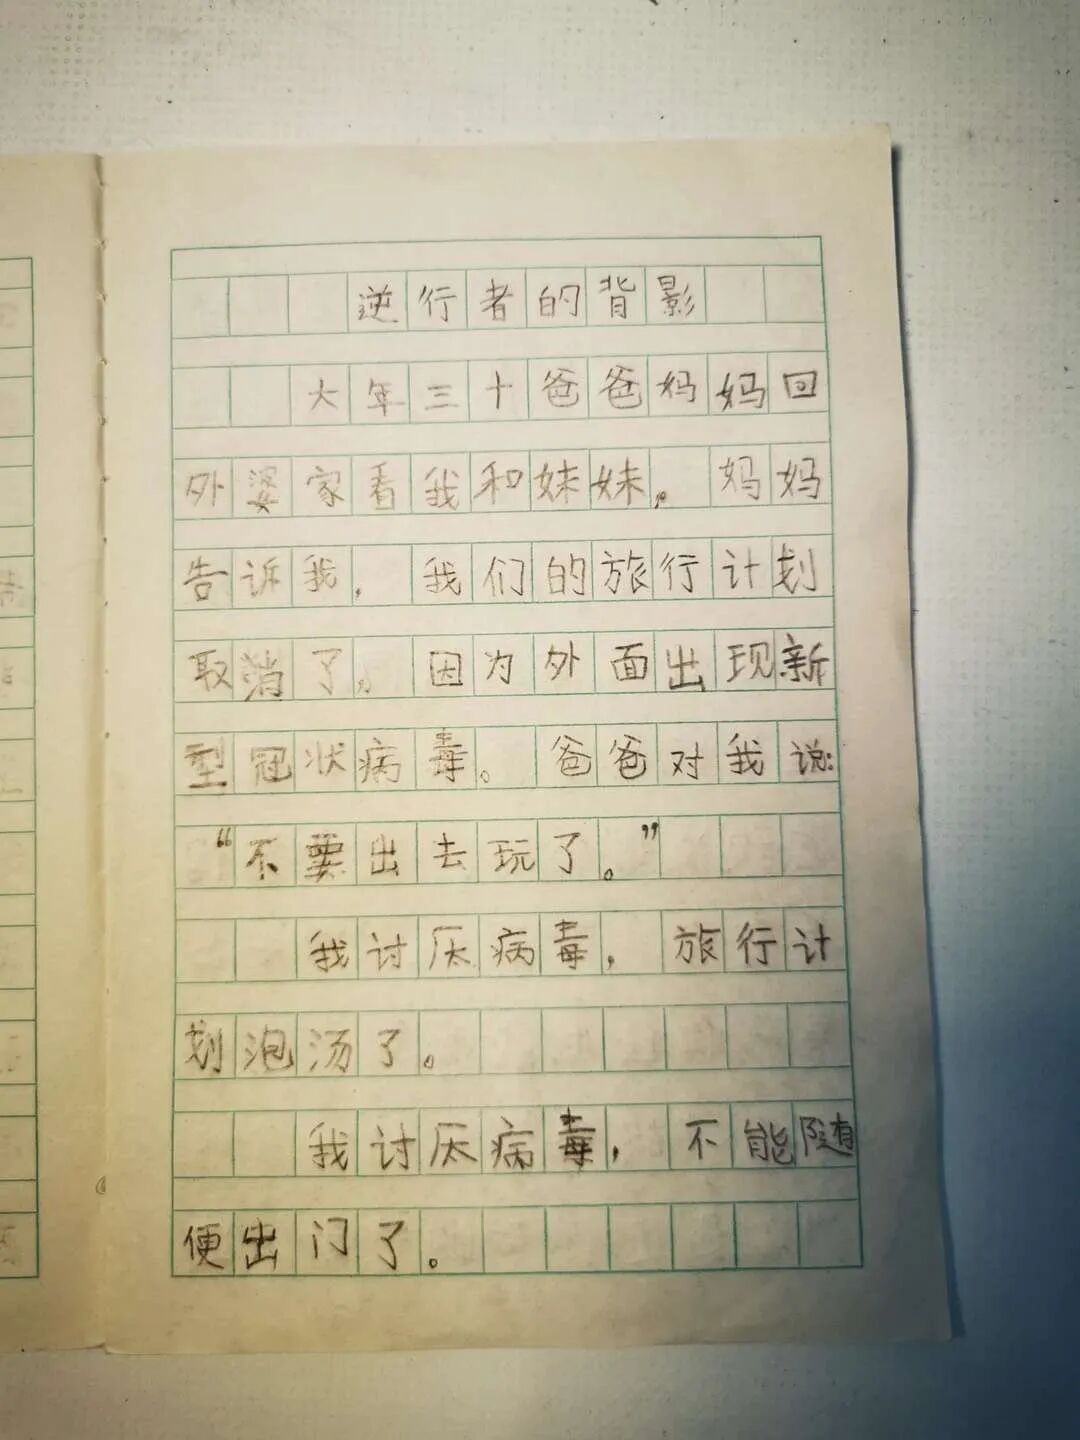 逆行者的背影
大年三十爸爸妈妈回
外婆家看我和妹妹。妈妈
告诉我，我们的旅行计划
取消了。因为外面出现新
型冠状病毒。爸爸对我说:
“不要出去玩了。”
我讨厌病毒，旅行计
划泡汤了。
我讨厌病毒，不能随
便出门了。